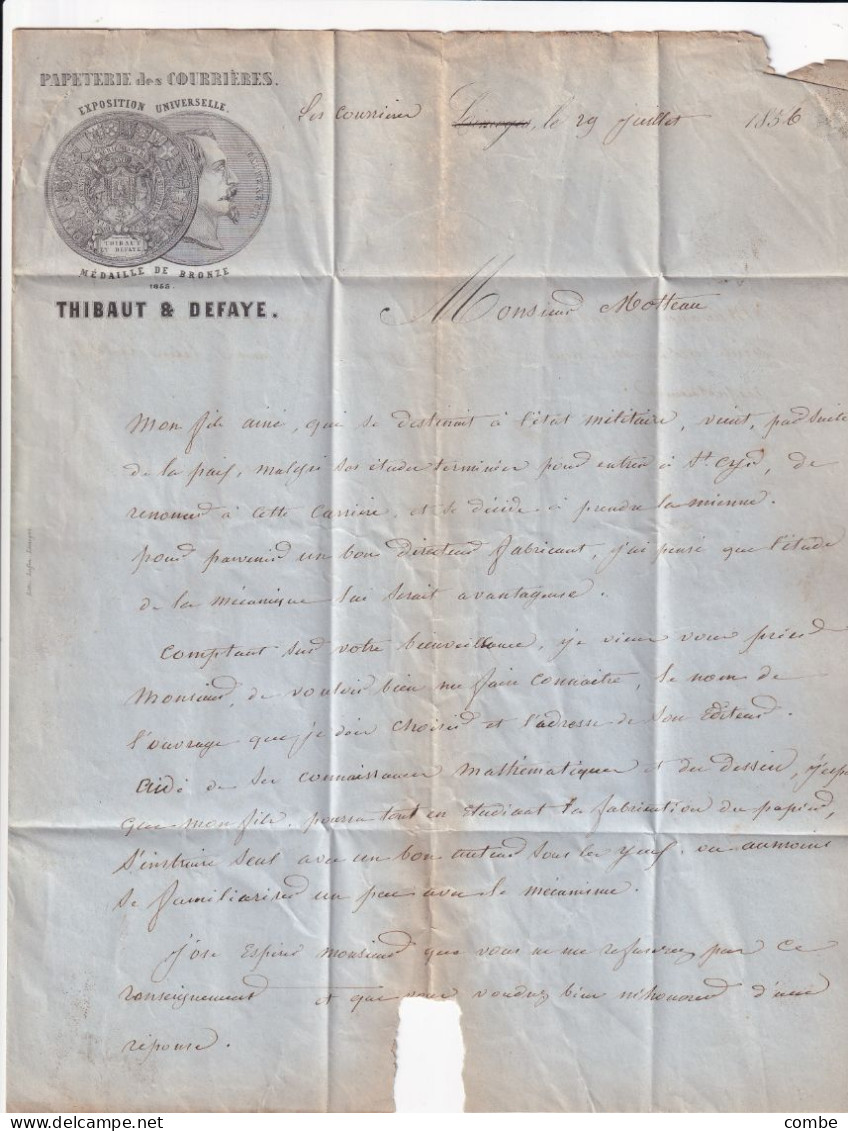 PAPETERIE des COURRIÈRES.
EXPOSITION UNIVERSELLE.
THIBAUT
ET DEFAYE
MÉDAILLE DE BRONZE
1855
THIBAUT & DEFAYE.
Les Courrières Limoges, le 29 juillet 1856
Monsieur Motteau
Mon fils ainé, qui se destinait à l'état militaire, vient, par suite
de la paix, malgré ses études terminées pour entrer à St. Cyr, de
renoncer à cette carrière, et se décide à prendre la mienne.
pour parvenir un bon directeur fabricant, j'ai pensé que l'étude
de la mécanique lui serait avantageuse.
Comptant sur votre bienveillance, je viens vous prier
Monsieur, de vouloir bien me faire connaitre, le nom de
l'ouvrage que je dois choisir et l'adresse de son Editeur.
Aidé de ses connaissances mathématiques et du dessin, j'esp
que mon fils pourra tout en étudiant la fabrication du papier,
s'instruire seul avec un bon auteur sous les yeux, ou au moins
se familiariser un peu avec le mécanisme.
J'ose Espérer monsieur que vous ne me refuserez pas ce
renseignement et que vous voudrez bien m'honorer d'une
réponse.
combe